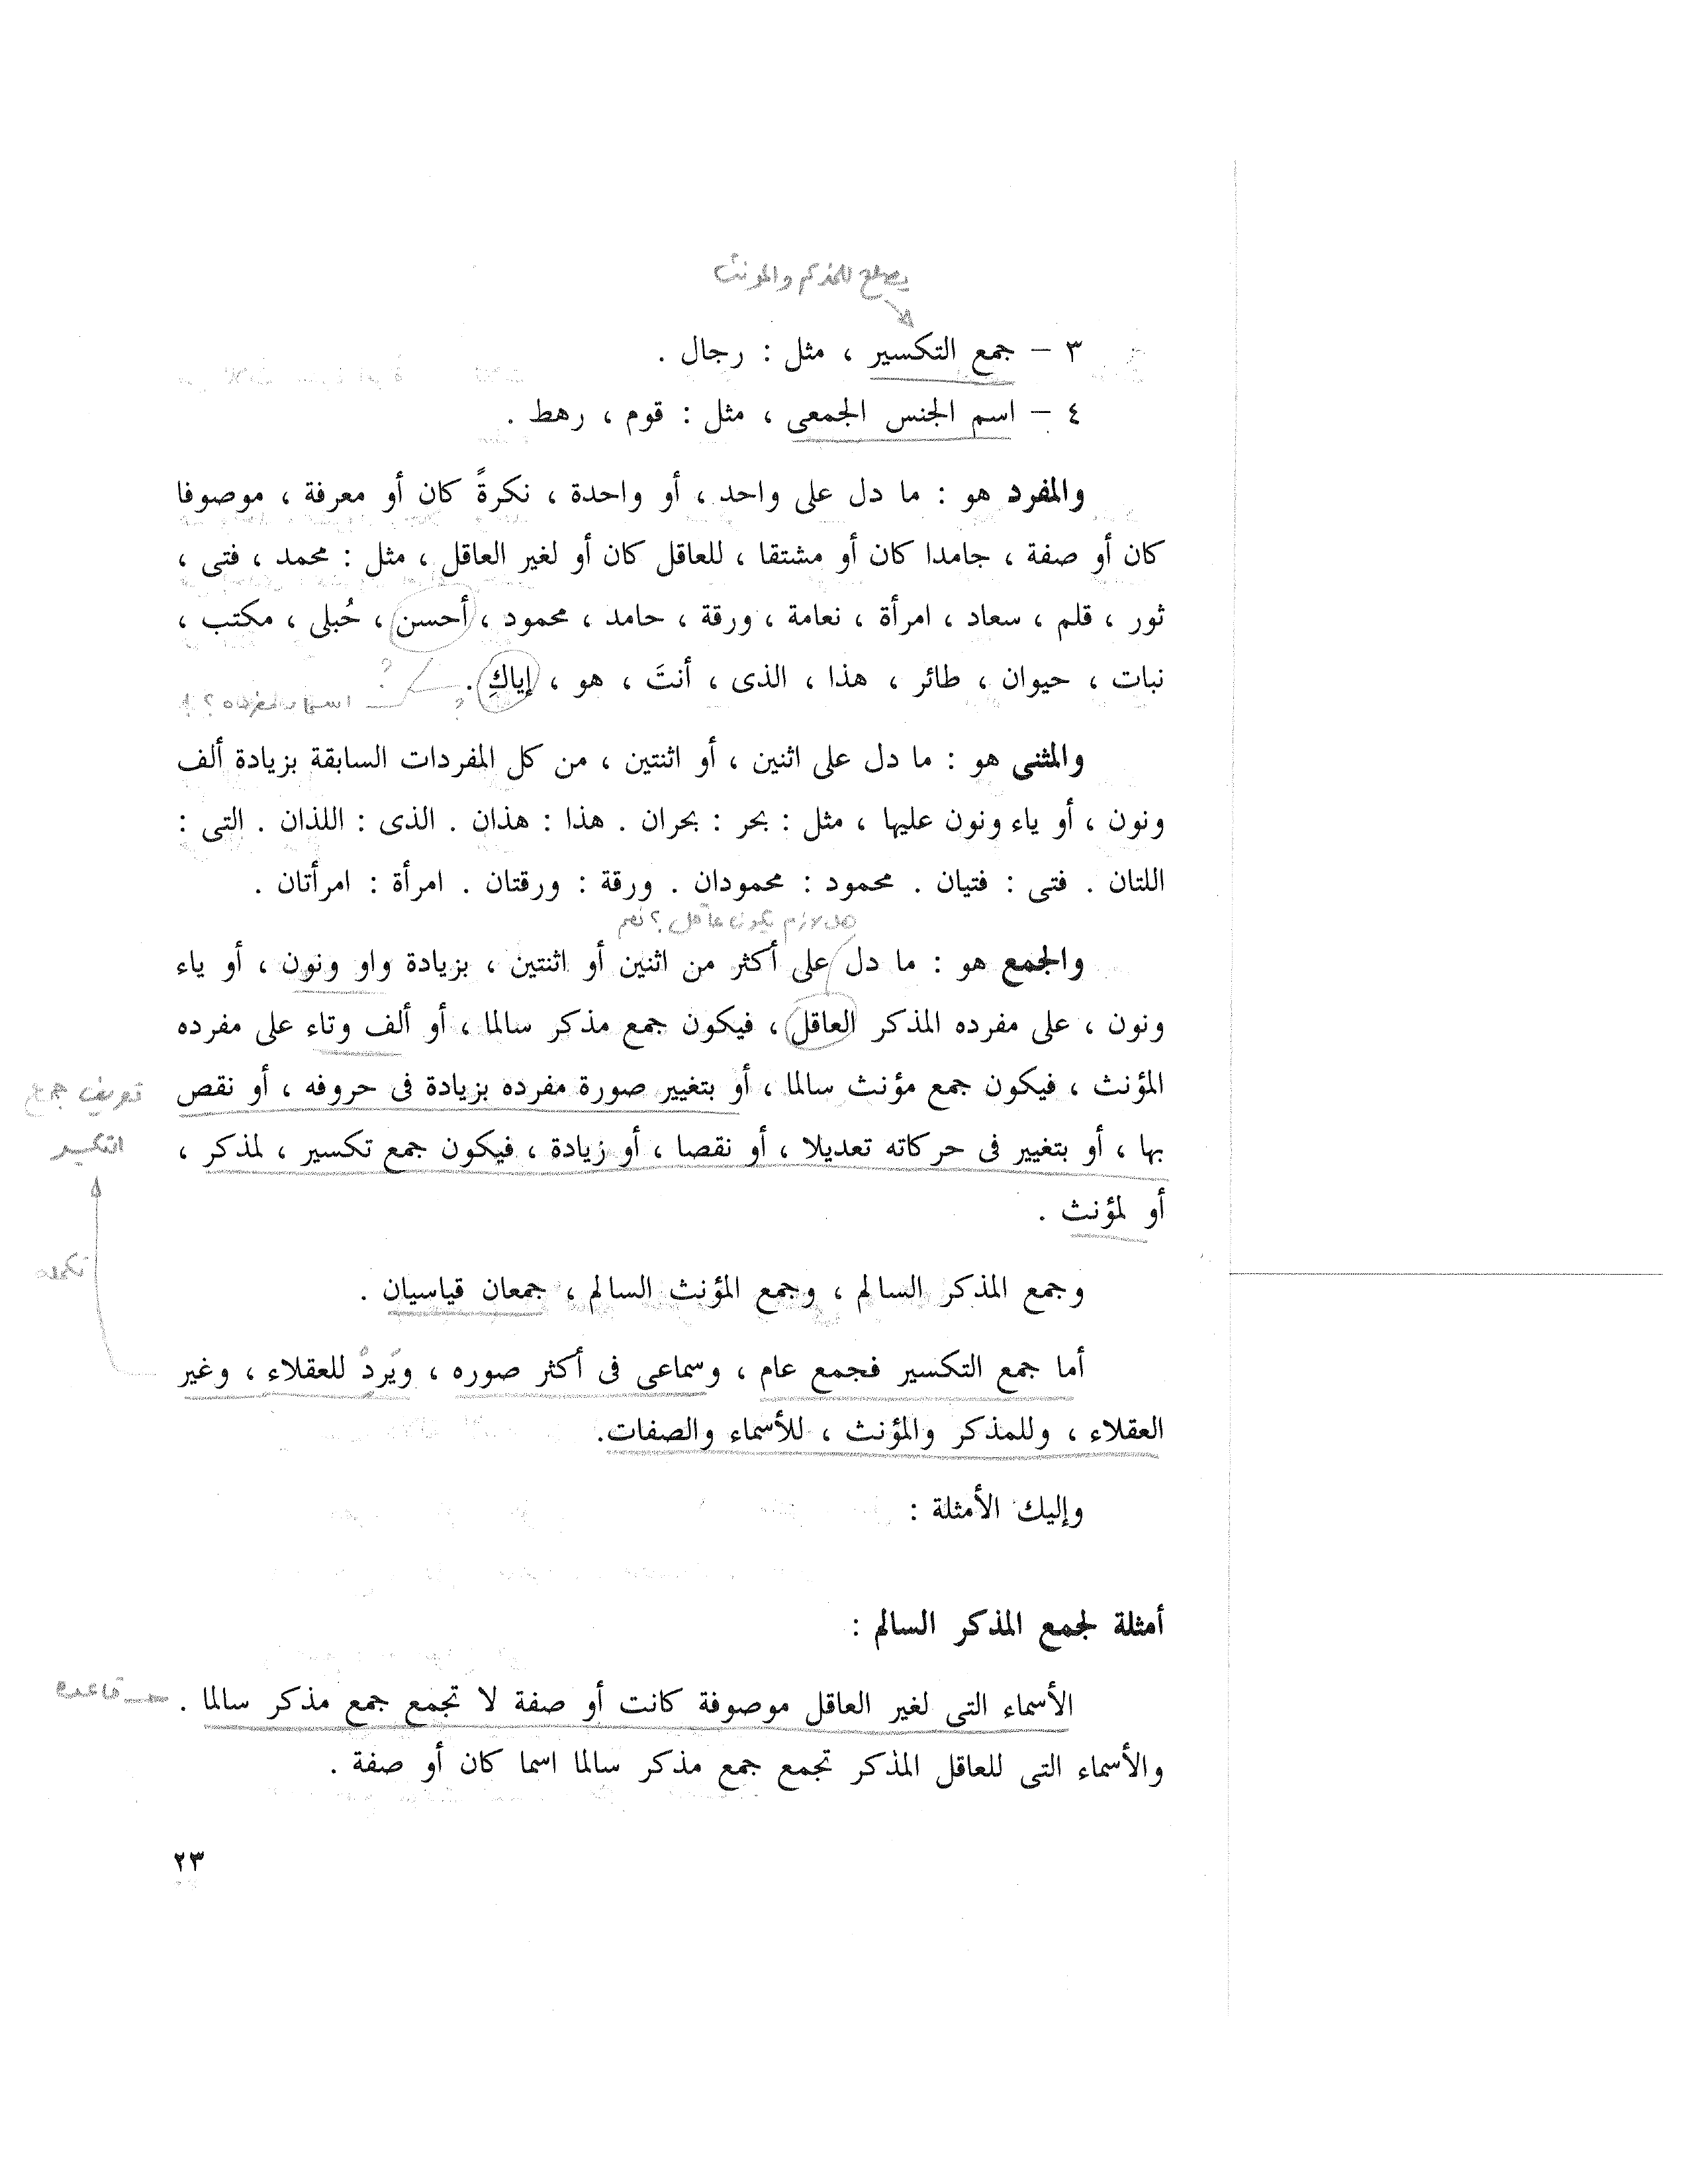 يصلح للمذكر والمؤنث
٣ – جمع التكسير ، مثل : رجال .
٤ – اسم الجنس الجمعى ، مثل : قوم ، رهط .
والمفرد هو : ما دل على واحد ، أو واحدة ، نكرةً كان أو معرفة ، موصوفا
كان أو صفة ، جامدا كان أو مشتقا ، للعاقل كان أو لغير العاقل ، مثل : محمد ، فتى ،
ثور ، قلم ، سعاد ، امرأة ، نعامة ، ورقة ، حامد ، محمود ، أحسن ، حُبلى ، مكتب ،
نبات ، حيوان ، طائر ، هذا ، الذى ، أنتَ ، هو ، إياكِ .
والمثنى هو : ما دل على اثنين ، أو اثنتين ، من كل المفردات السابقة بزيادة ألف
ونون ، أو ياء ونون عليها ، مثل : بحر : بحران . هذا : هذان . الذى : اللذان . التى :
اللتان . فتى : فتيان . محمود : محمودان . ورقة : ورقتان . امرأة : امرأتان .
هل لازم يكون عاقل ؟ نعم
والجمع هو : ما دل على أكثر من اثنين أو اثنتين ، بزيادة واو ونون ، أو ياء
ونون ، على مفرده المذكر العاقل ، فيكون جمع مذكر سالما ، أو ألف وتاء على مفرده
المؤنث ، فيكون جمع مؤنث سالما ، أو بتغيير صورة مفرده بزيادة فى حروفه ، أو نقص
تعريف جمع
بها ، أو بتغيير فى حركاته تعديلا ، أو نقصا ، أو زيادة ، فيكون جمع تكسير ، لمذكر ،
التكسير
أو لمؤنث .
وجمع المذكر السالم ، وجمع المؤنث السالم ، جمعان قياسيان .
أما جمع التكسير فجمع عام ، وسماعى فى أكثر صوره ، ويَردْ للعقلاء ، وغير
العقلاء ، وللمذكر والمؤنث ، للأسماء والصفات.
وإليك الأمثلة :
أمثلة لجمع المذكر السالم :
الأسماء التى لغير العاقل موصوفة كانت أو صفة لا تجمع جمع مذكر سالما .
قاعدة
والأسماء التى للعاقل المذكر تجمع جمع مذكر سالما اسما كان أو صفة .
٢٣